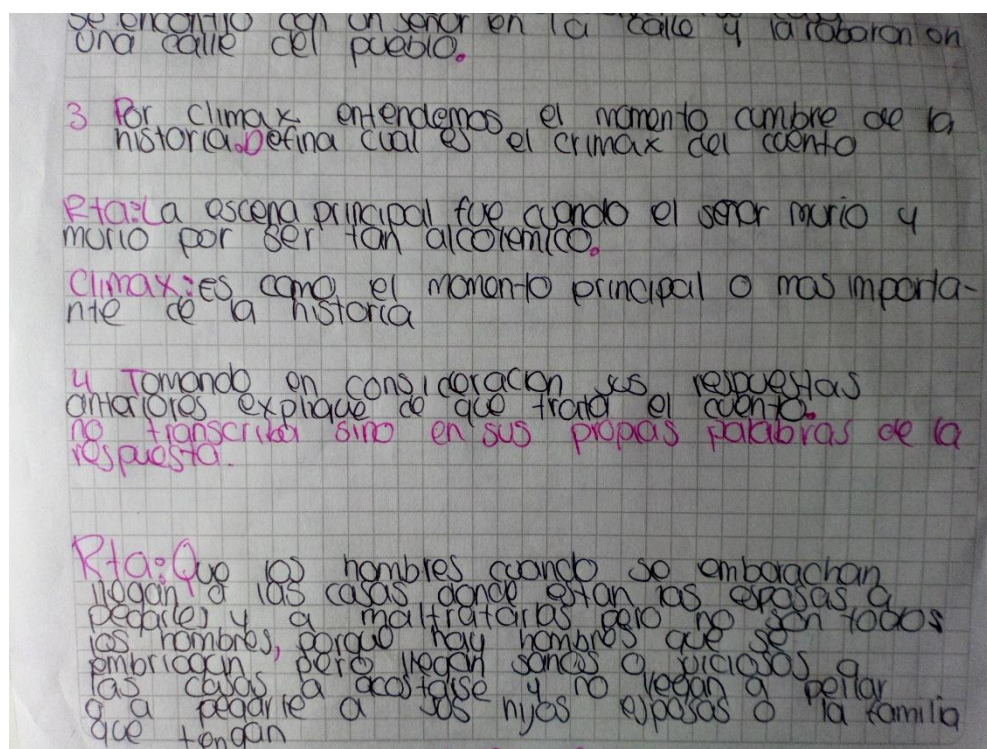 se encontro con un señor en la calle y la robaron en
una calle del pueblo.
3 Por climax entendemos el momento cumbre de la
historia. Defina cual es el crimax del cuento
Rta: La escena principal fue cuando el señor murio y
murio por ser tan alcolemico.
Climax: Es como el momento principal o mas importa-
nte de la historia
4 Tomando en consideracion sus respuestas
anteriores explique de que trata el cuento.
no transcriba sino en sus propias palabras de la
respuesta.
Rta: Que los hombres cuando se emborachan
llegan a las casas donde estan las esposas a
pegarles y a maltratarlas pero no son todos
los hombres, porque hay hombres que se
embriagan, pero llegan sanos o viciosos a
las casas a acostarse y no llegan a peliar
o a pegarle a sus hijos esposas o la familia
que tengan